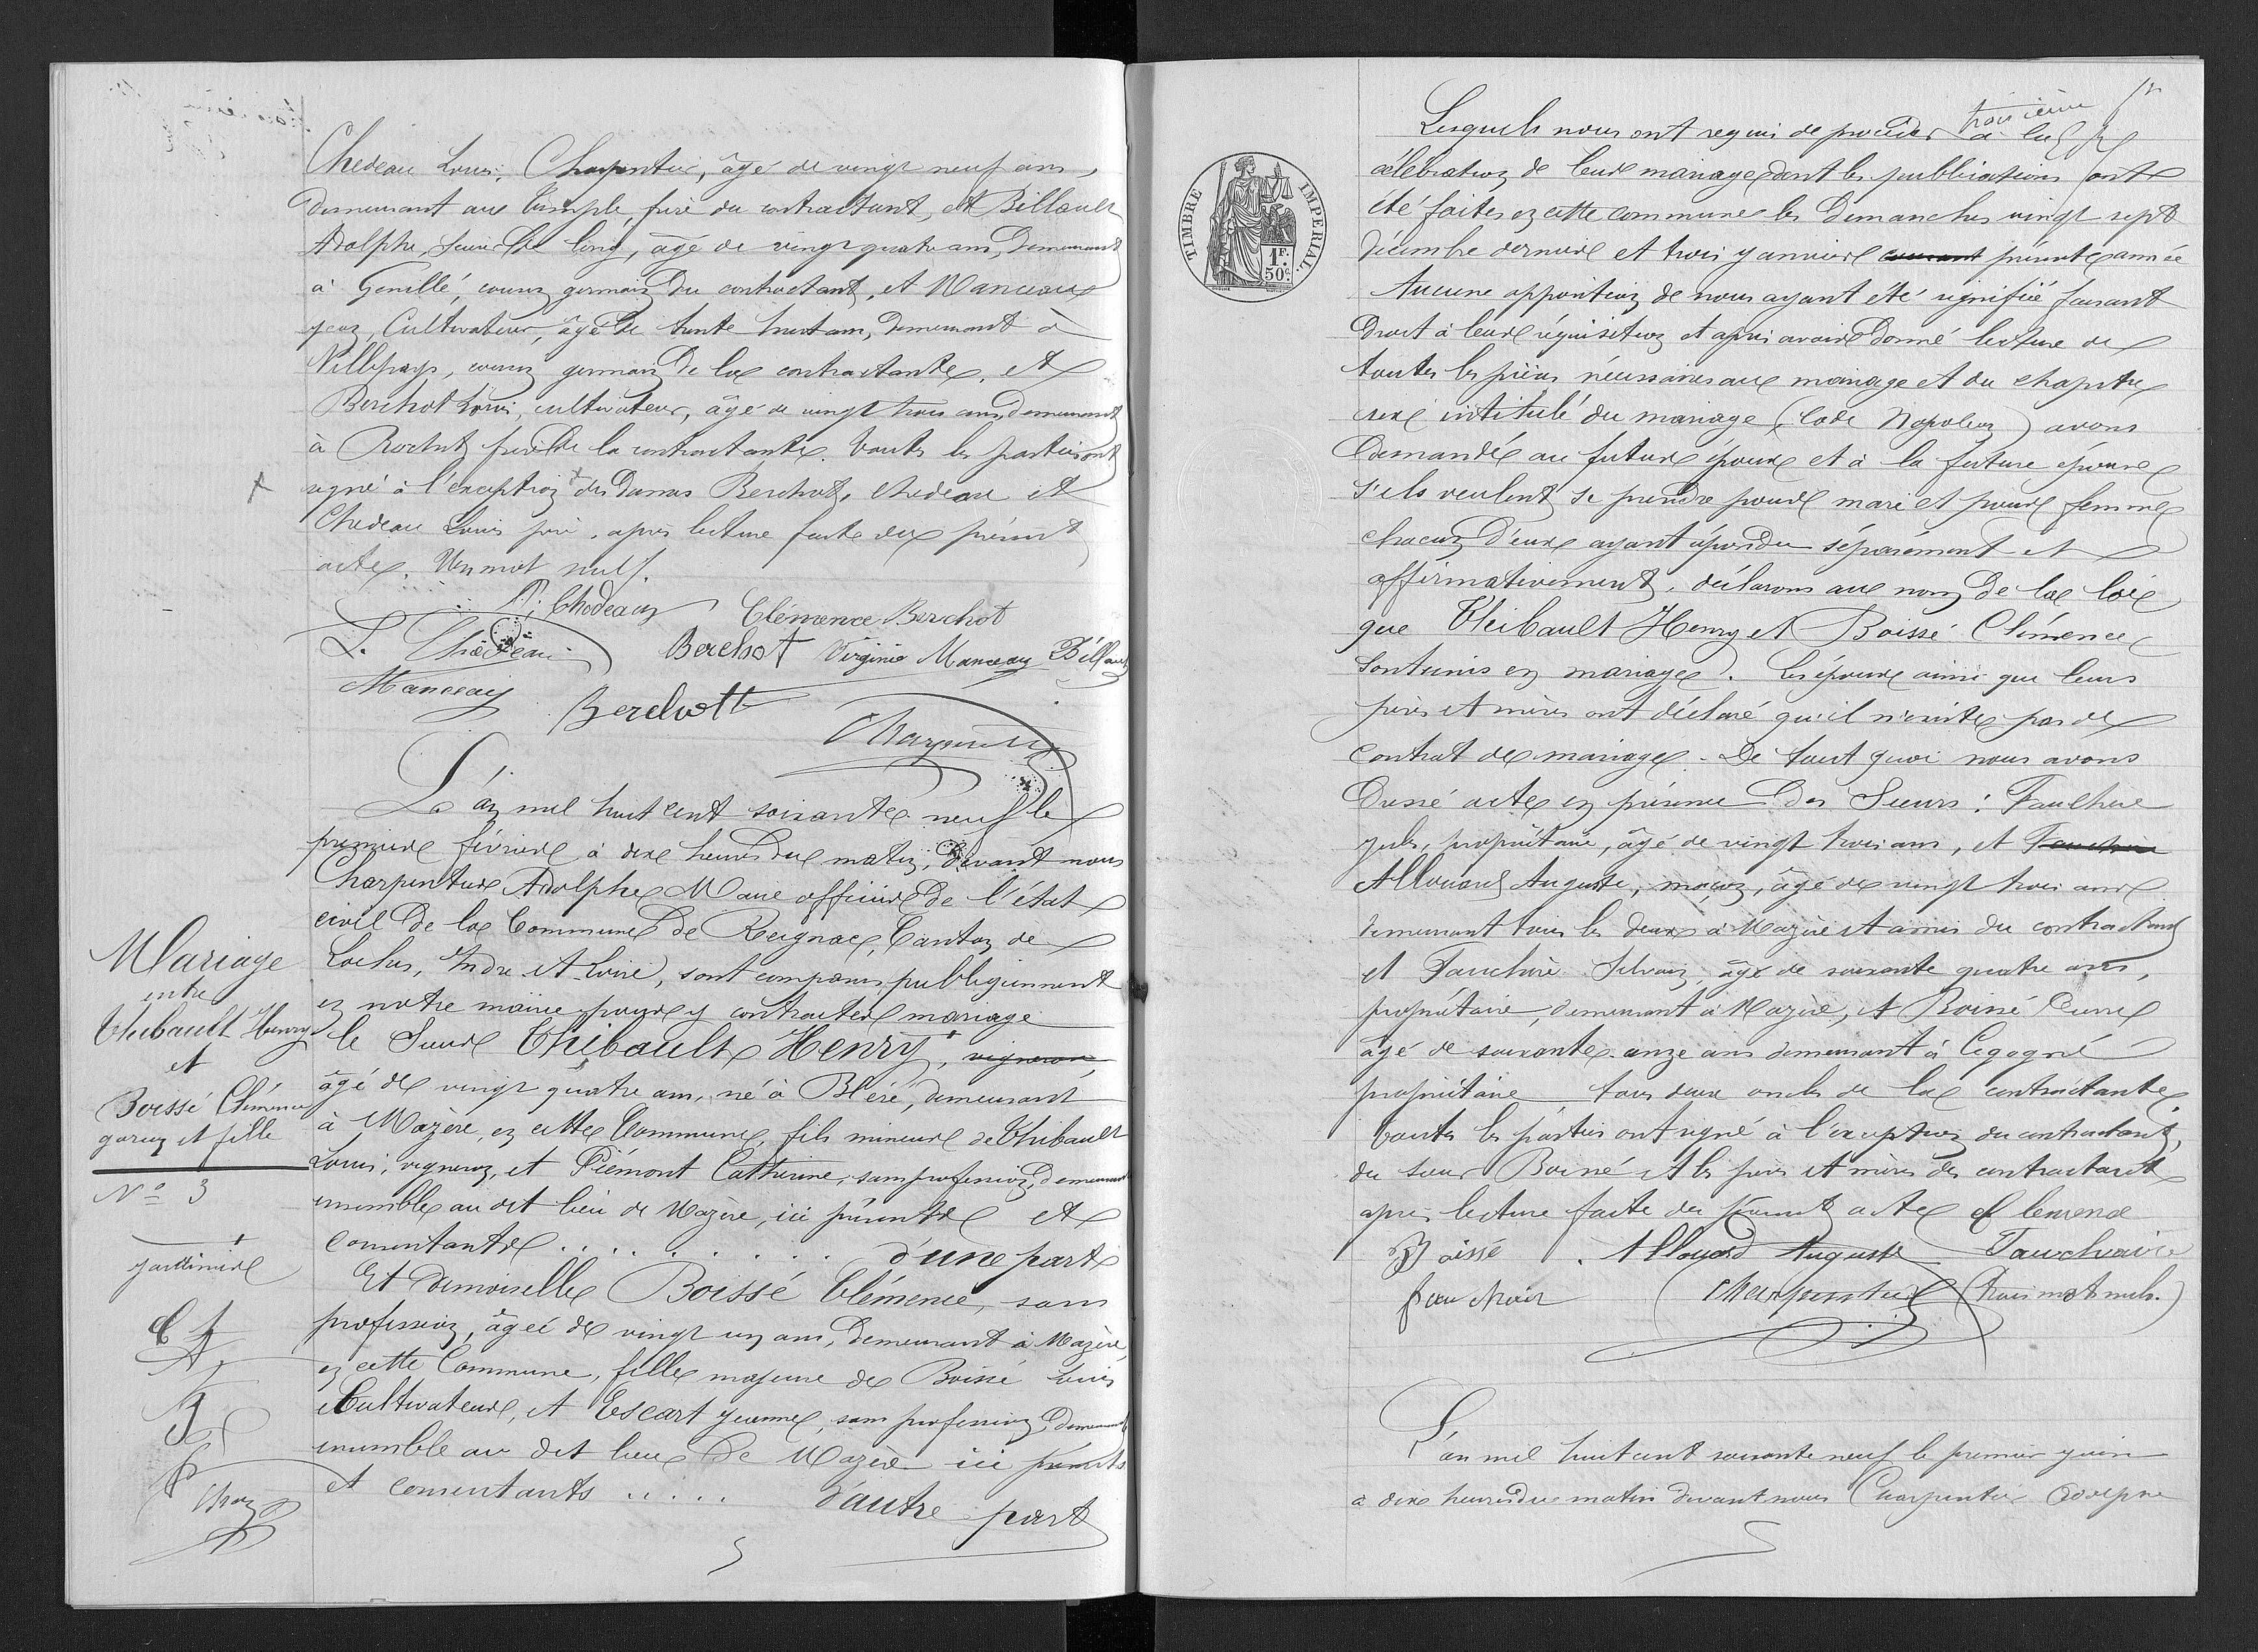 Chedeau Louis, Charpentier, âgé de vingt neuf ans,
demeurant au Temple, frère du contractant, et Billault
Adolphe, Scieur de long, âgé de vingt quatre ans, demeurant
à Genillé, cousin germain du contractant, et Manceaux
Jean, Cultivateur, âgé de trente huit ans, demeurant à
Villepays, cousin germain de la contractante, et
Berchot Louis, cultivateur, âgé de vingt trois ans, demeurant
à Rochut, frère de la contractante. Toutes les parties ont
signé à l'exception des Dames Berchot, Chedeau et
Chedeau Louis père, après lecture faite du présent
acte. Un mot nul.
P. Chedeau Clémence Berchot
L. Chedeau Berchot Virginie Manceau Billault
Manceau
Berchott
Charpentier
L'an mil huit cent soixante neuf le
premier février à dix heures du matin, devant nous
Charpentier Adolphe Maire officier de l'état
civil de la Commune de Reignac, Canton de
Loches, Indre et Loire, sont comparus publiquement
en notre mairie pour y contracter mariage
le Sieur Thibault Henry, vigneron,
âgé de vingt quatre ans, né à Bléré, demeurant
à Mazère, en cette Commune, fils mineur de Thibault
Louis, vigneron, et Piémont Catherine, sans profession, demeurant
ensemble au dit lieu de Mazère, ici présents et
consentants . . . . . . . d'une part
Et demoiselle Boissé Clémence, sans
profession, âgée de vingt un ans, demeurant à Mazère,
en cette Commune, fille majeure de Boissé Louis
Cultivateur, et Escart Jeanne, sans profession, demeurant
ensemble au dit lieu de Mazère ici présents
et consentants ..... d'autre part
Mariage
entre
Thibault Henry
et
Boissé Clémence
garçon et fille
N° 3
jardinier
troisième
Lesquels nous ont requis de procéder à la
célébration de leur mariage dont les publications ont
été faites en cette commune les Dimanches vingt sept
décembre dernier et trois janvier courant présente année
Aucune opposition de nous ayant été signifiée faisant
Droit à leur réquisition et après avoir donné lecture de
toutes les pièces nécessaires au mariage et du chapitre
six intitulé du mariage (Code Napoléon) avons
demandé au futur époux et à la future épouse
s'ils veulent se prendre pour mari et pour femme
chacun d'eux ayant répondu séparément et
affirmativement, déclarons au nom de la loi
que Thibault Henry et Boissé Clémence
sont unis en mariage. Les époux ainsi que leurs
pères et mères ont déclaré qu'il n'existe pas de
contrat de mariage. De tout quoi nous avons
Dressé acte en présence des Sieurs : Fauchère
Jules, propriétaire, âgé de vingt trois ans, et
Allouard Auguste, maçon, âgé de vingt trois ans
demeurant tous les deux à Mazère et amis du contractant
et Fauchère Silvain, âgé de soixante quatre ans,
propriétaire, demeurant à Mazère, et Boissé Pierre
âgé de soixante onze ans demeurant à Cigogné
propriétaire tous deux oncles de la contractante
toutes les parties ont signé à l'exception du contractant,
du sieur Boissé et les pères et mères des contractants
après lecture faite du présent acte Clemence
Boissé . Allouard Auguste Fauchaire
Fauchair Charpentier (trois mots nuls.)
L'an mil huit cent soixante neuf le premier juin
à dix heures du matin devant nous Charpentier Adolphe
TIMBRE IMPERIAL.
1F.
50c.